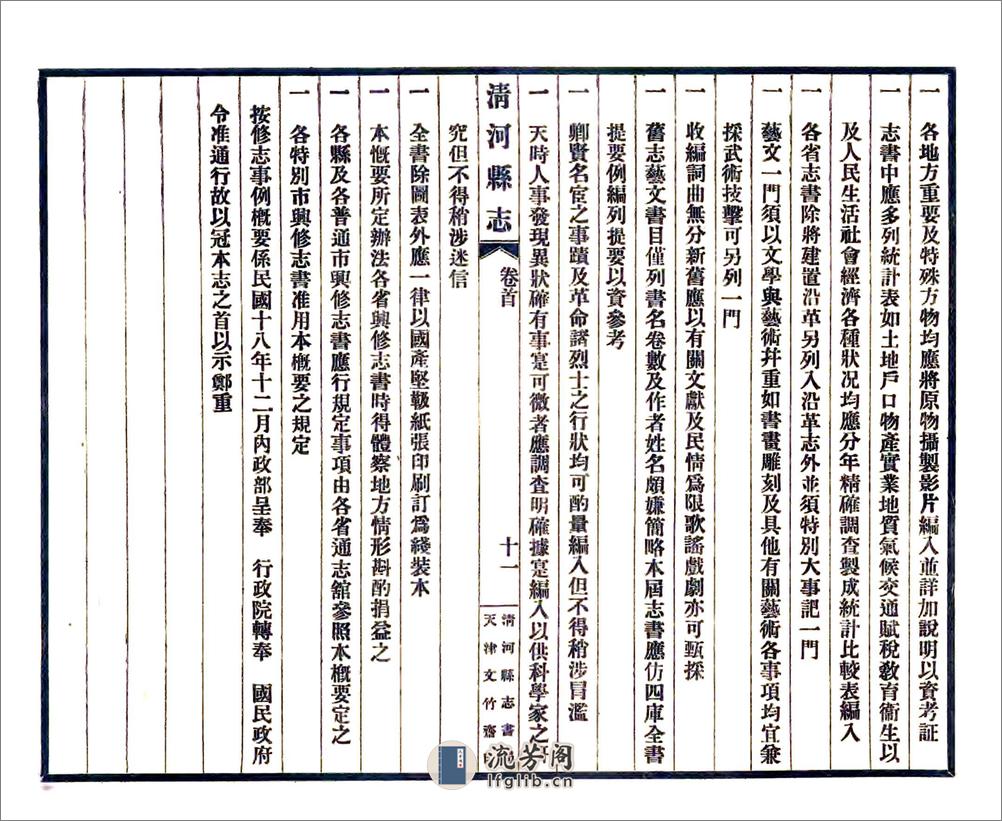 一 各地方重要及特殊方物均應將原物攝製影片編入並詳加說明以資考証
一 志書中應多列統計表如土地戶口物產實業地質氣候交通賦稅敎育衞生以
及人民生活社會經濟各種狀况均應分年精確調查製成統計比較表編入
一 各省志書除將建置沿革另列入沿革志外並須特別大事記一門
一 藝文一門須以文學與藝術幷重如書畫雕刻及其他有關藝術各事項均宜兼
採武術技擊可另列一門
一 收編詞曲無分新舊應以有關文獻及民情爲限歌謠戲劇亦可甄採
一 舊志藝文書目僅列書名卷數及作者姓名頗嫌簡略本屆志書應仿四庫全書
提要例編列提要以資參考
一 鄕賢名宦之事蹟及革命諸烈士之行狀均可酌量編入但不得稍涉冒濫
一 天時人事發現異狀確有事寔可徵者應調査明確據寔編入以供科學家之
淸河縣志
卷首
十一
淸河縣志書
天津文竹齋
究但不得稍涉迷信
一 全書除圖表外應一律以國產堅靱紙張印刷訂爲綫裝本
一 本槪要所定辦法各省興修志書時得體察地方情形斟酌損益之
一 各縣及各普通市興修志書應行規定事項由各省通志舘參照本槪要定之
一 各特別市興修志書准用本槪要之規定
按修志事例槪要係民國十八年十二月內政部呈奉 行政院轉奉 國民政府
令准通行故以冠本志之首以示鄭重
流芳阁
lfglib.cn